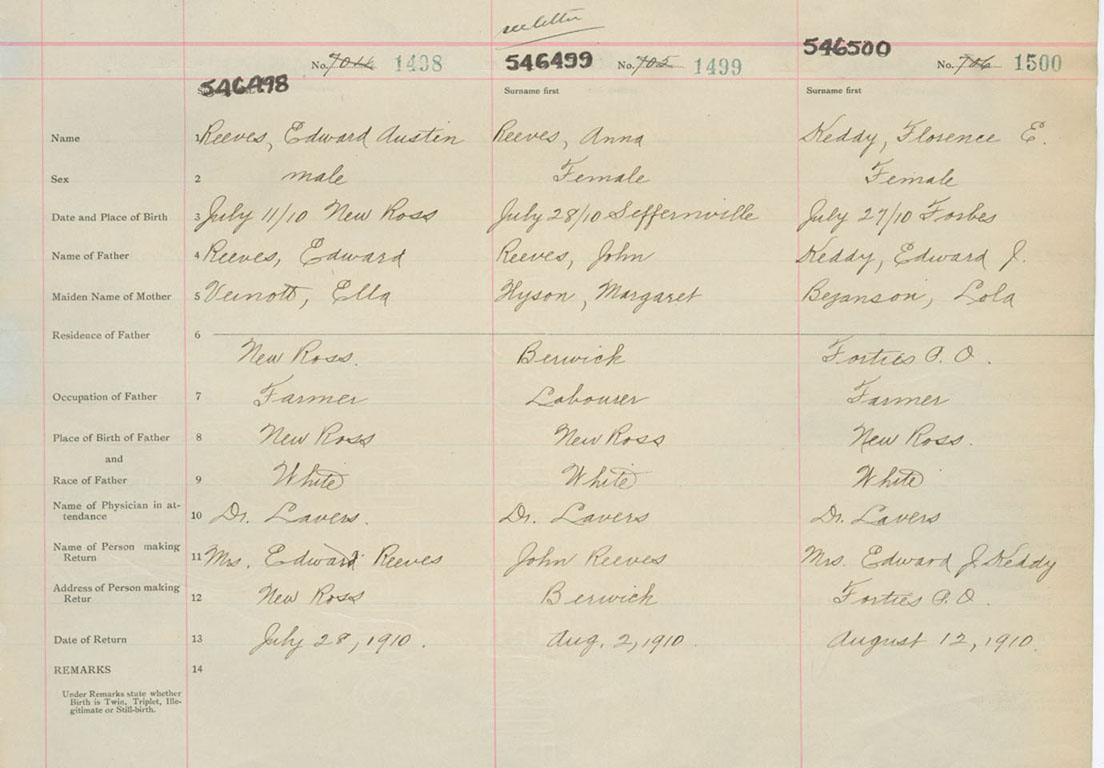 see letter
546498 No. 704 1498
546499 No. 705 1499
546500 No. 706 1500
Surname first Surname first
Name 1 Reeves, Edward Austin Reeves, Anna Keddy, Florence E.
Sex 2 male Female Female
Date and Place of Birth 3 July 11/10 New Ross July 28/10 Seffernville July 27/10 Forbes
Name of Father 4 Reeves, Edward Reeves, John Keddy, Edward J.
Maiden Name of Mother 5 Veinott, Ella Hyson, Margaret Bezanson, Lola
Residence of Father 6
New Ross. Berwick Forties P.O.
Occupation of Father 7 Farmer Labourer Farmer
Place of Birth of Father 8 New Ross New Ross New Ross.
and
Race of Father 9 White White White
Name of Physician in at-
tendance 10 Dr. Lavers. Dr. Lavers Dr. Lavers
Name of Person making
Return 11 Mrs. Edward Reeves John Reeves Mrs. Edward J. Keddy
Address of Person making
Retur 12 New Ross Berwick Forties P.O.
Date of Return 13 July 28, 1910. Aug. 2, 1910 August 12, 1910.
REMARKS 14
Under Remarks state whether
Birth is Twin, Triplet, Ille-
gitimate or Still-birth.